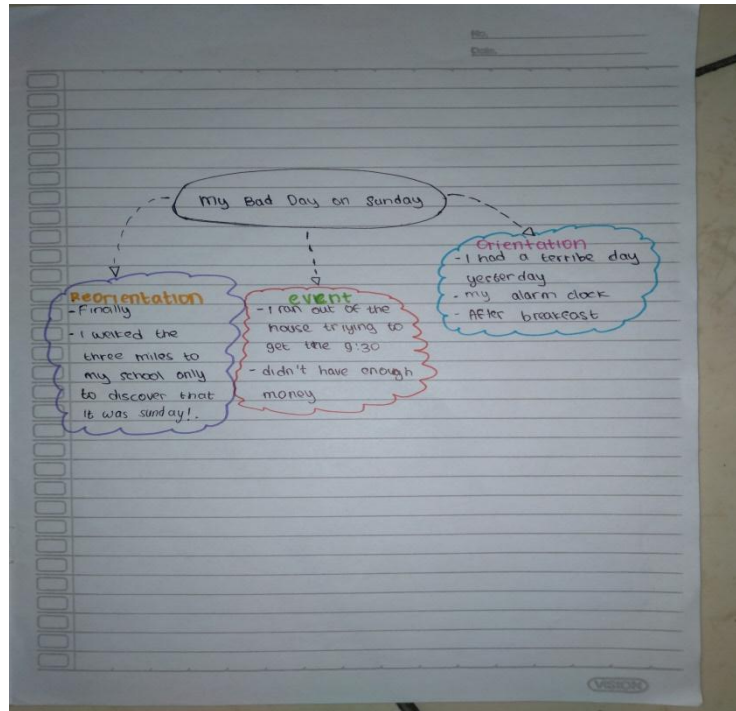 No.
Date.
My Bad Day on Sunday
Reorientation
- Finally
- I walked the
three miles to
my school only
to discover that
it was sunday!.
event
- I ran out of the
house triying to
get the 9:30
- didn't have enough
money
Orientation
- I had a terribe day
yesterday
- my alarm clock
- After breakfast
VISION